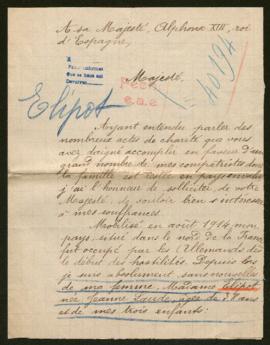 A sa Majesté, Alphonse XIII, roi
d'Espagne,
Majesté,
Elipot
Ayant entendu parler des
nombreux actes de charité que vous
avez daigné accomplir en faveur d'un
grand nombre de mes compatriotes dont
la famille est restée en pays
j'ai l'honneur de solliciter de votre
Majesté, de vouloir bien s'intéresser
à mes souffrances.
Mobilisé en août 1914, mon
pays, situé dans le nord de la
fut occupé par les Allemands dès
le début des hostilités. Depuis lors
je suis absolument sans nouvelles
de ma femme, Madame Elipot
née Jeanne
et de mes trois enfants: